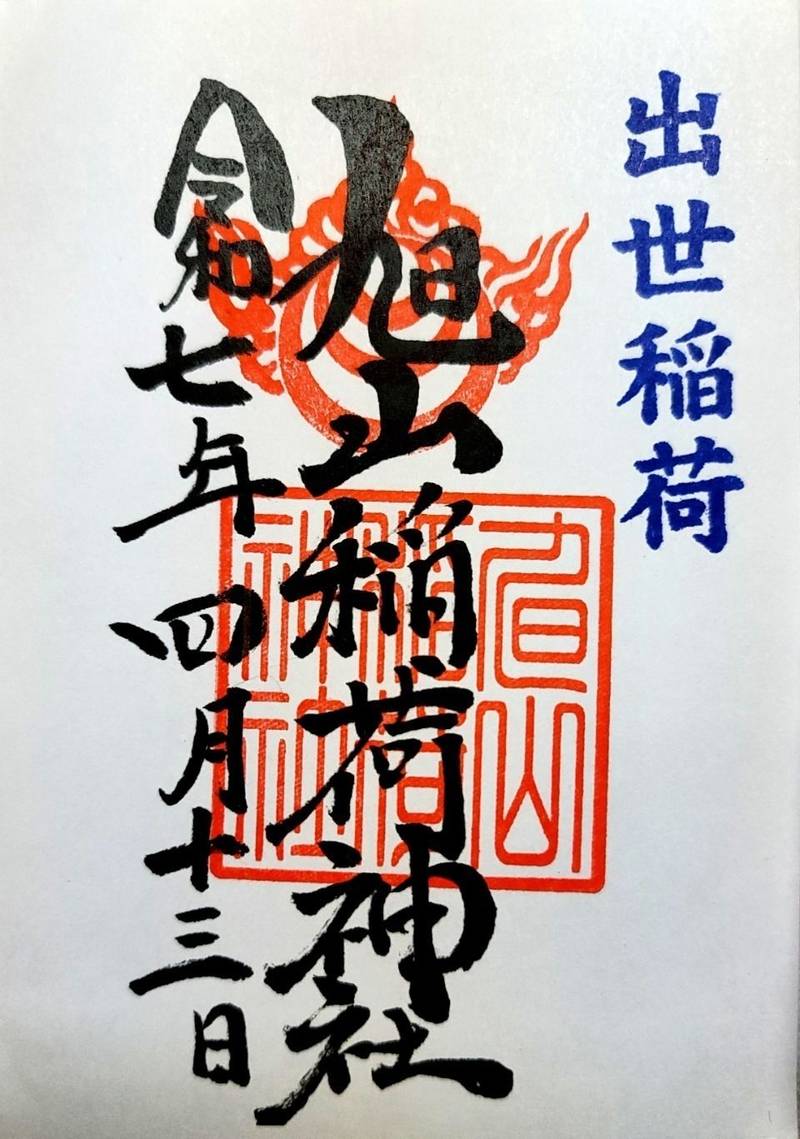 出世稲荷
旭山稲荷神社
令和七年四月十三日
旭山
稲荷
神社